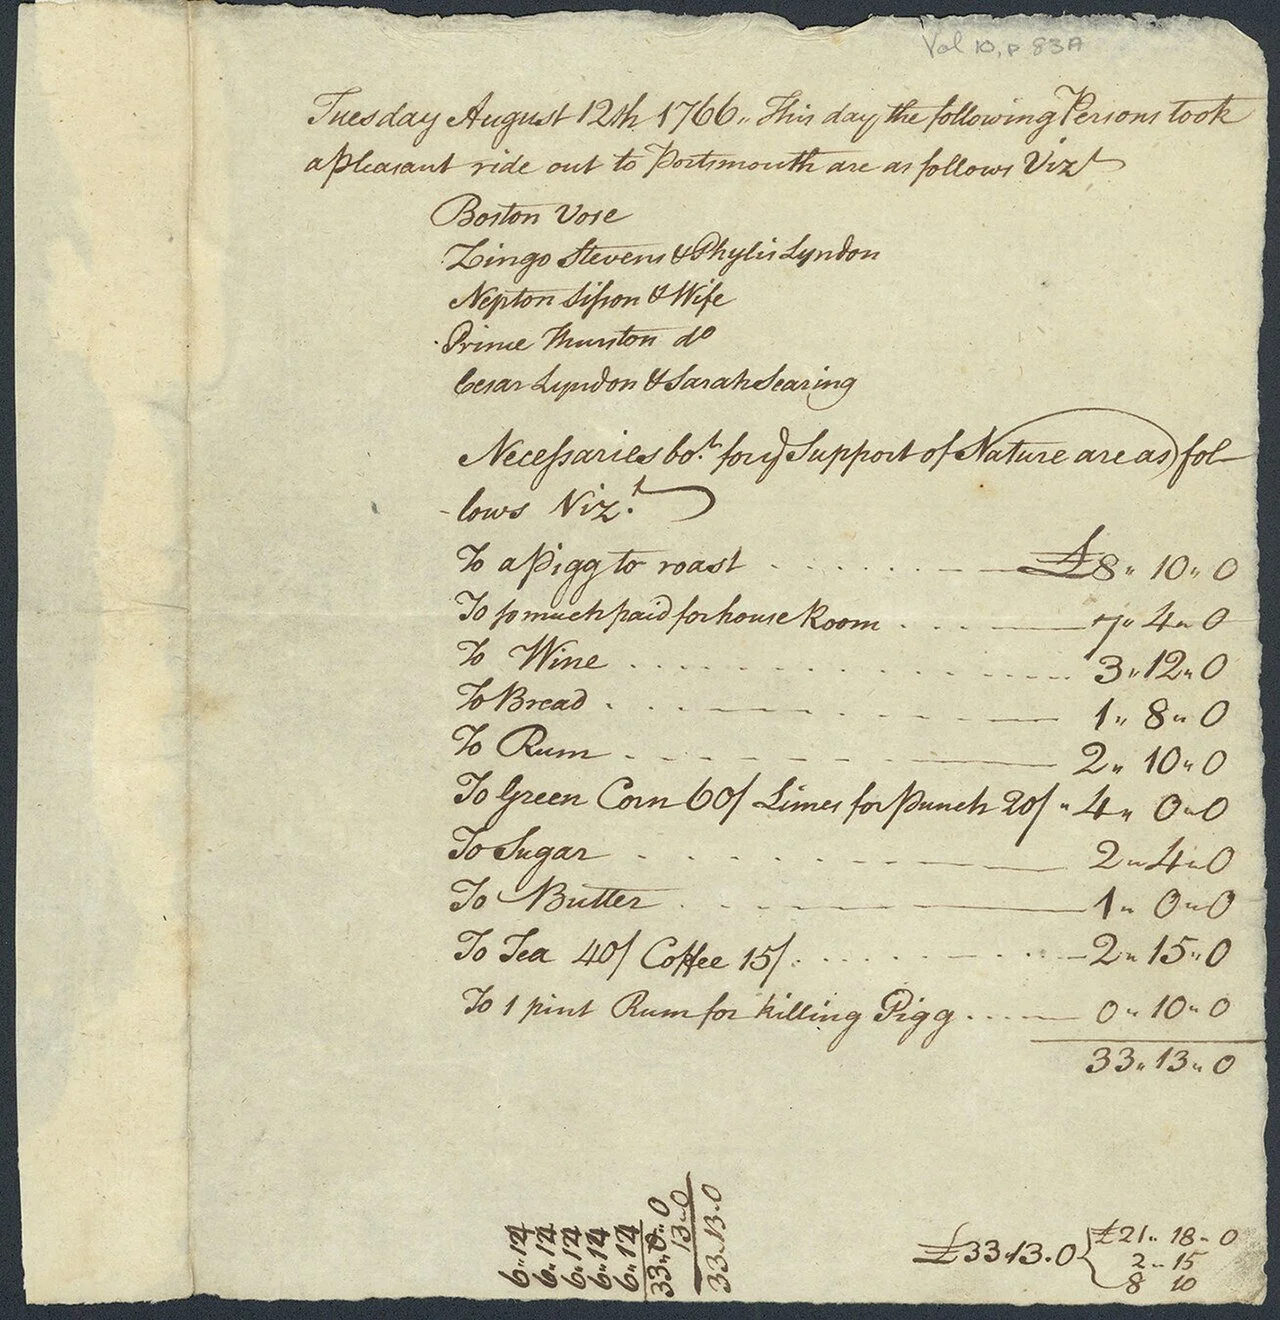 Vol 10, p 83A
Tuesday August 12th 1766,, This day the following Persons took
a pleasant ride out to Portsmouth are as follows Vizt
Boston Vose
Zingo Stevens & Phylis Lyndon
Nepton Sisson & Wife
Prime Thurston do
Cesar Lyndon & Sarah Searing
Necessaries bot. for ye Support of Nature are as fol-
-lows Vizt.
To a Pigg to roast £8,, 10,, 0
To so much paid for house Room 7,, 4,, 0
To Wine 3,, 12,, 0
To Bread 1,, 8,, 0
To Rum 2,, 10,, 0
To Green Corn 60/ Limes for Punch 20/ 4,, 0,, 0
To Sugar 2,, 4,, 0
To Butter 1,, 0,, 0
To Tea 40/ Coffee 15/ 2,, 15,, 0
To 1 pint Rum for killing Pigg 0,, 10,, 0
33,, 13,, 0
6,, 14
6,, 14
6,, 14
6,, 14
6,, 14
33,, 0,, 0
13,, 0
33,, 13,, 0
£33,, 13,, 0 { £21,, 18,, 0
2,, 15
8 10